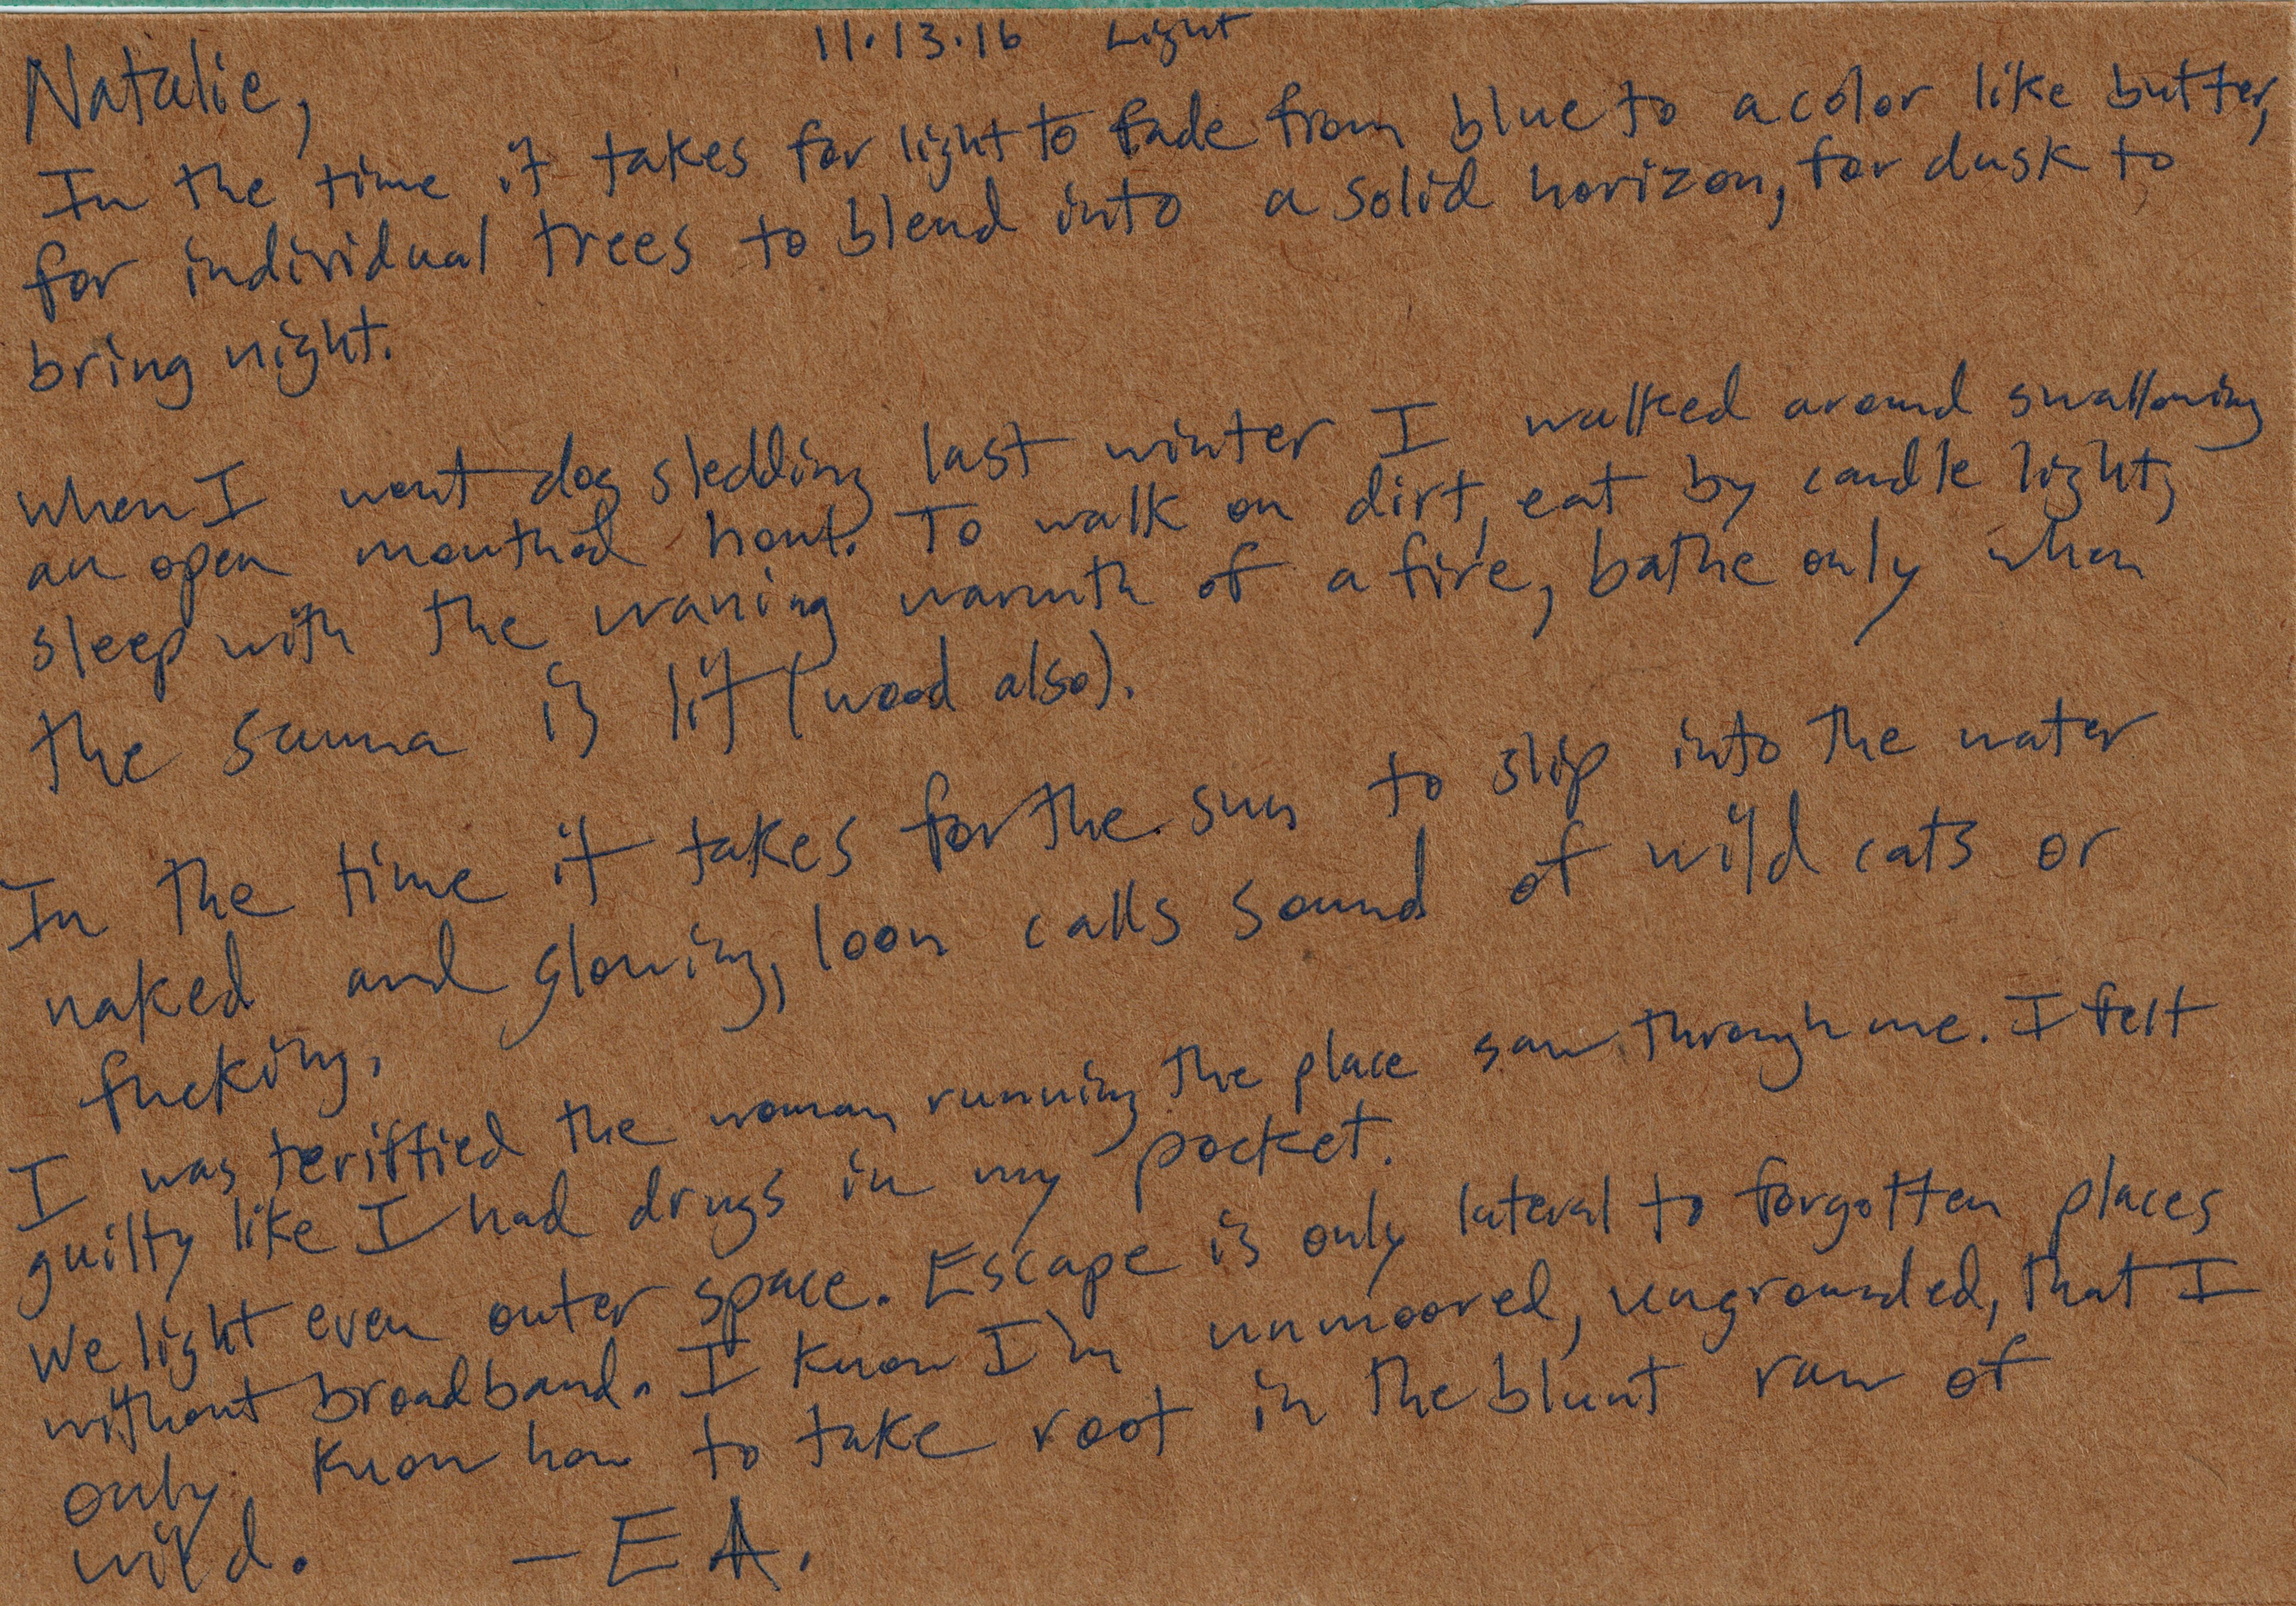 11.13.16 Light
Natalie,
In the time it takes for light to fade from blue to a color like butter,
for individual trees to blend into a solid horizon, for dusk to
bring night.
When I went dog sledding last winter I walked around swallowing
an open mouthed howl. To walk on dirt, eat by candle light,
sleep with the waning warmth of a fire, bathe only when
the sauna is lit (wood also).
In the time it takes for the sun to slip into the water
naked and glowing, loon calls sound of wild cats or
fucking.
I was teriffied the woman running the place saw through me. I felt
guilty like I had drugs in my pocket.
We light even outer space. Escape is only lateral to forgotten places
without broadband. I know I'm unmoored, ungrounded, that I
only know how to take root in the blunt raw of
wild. — EA.